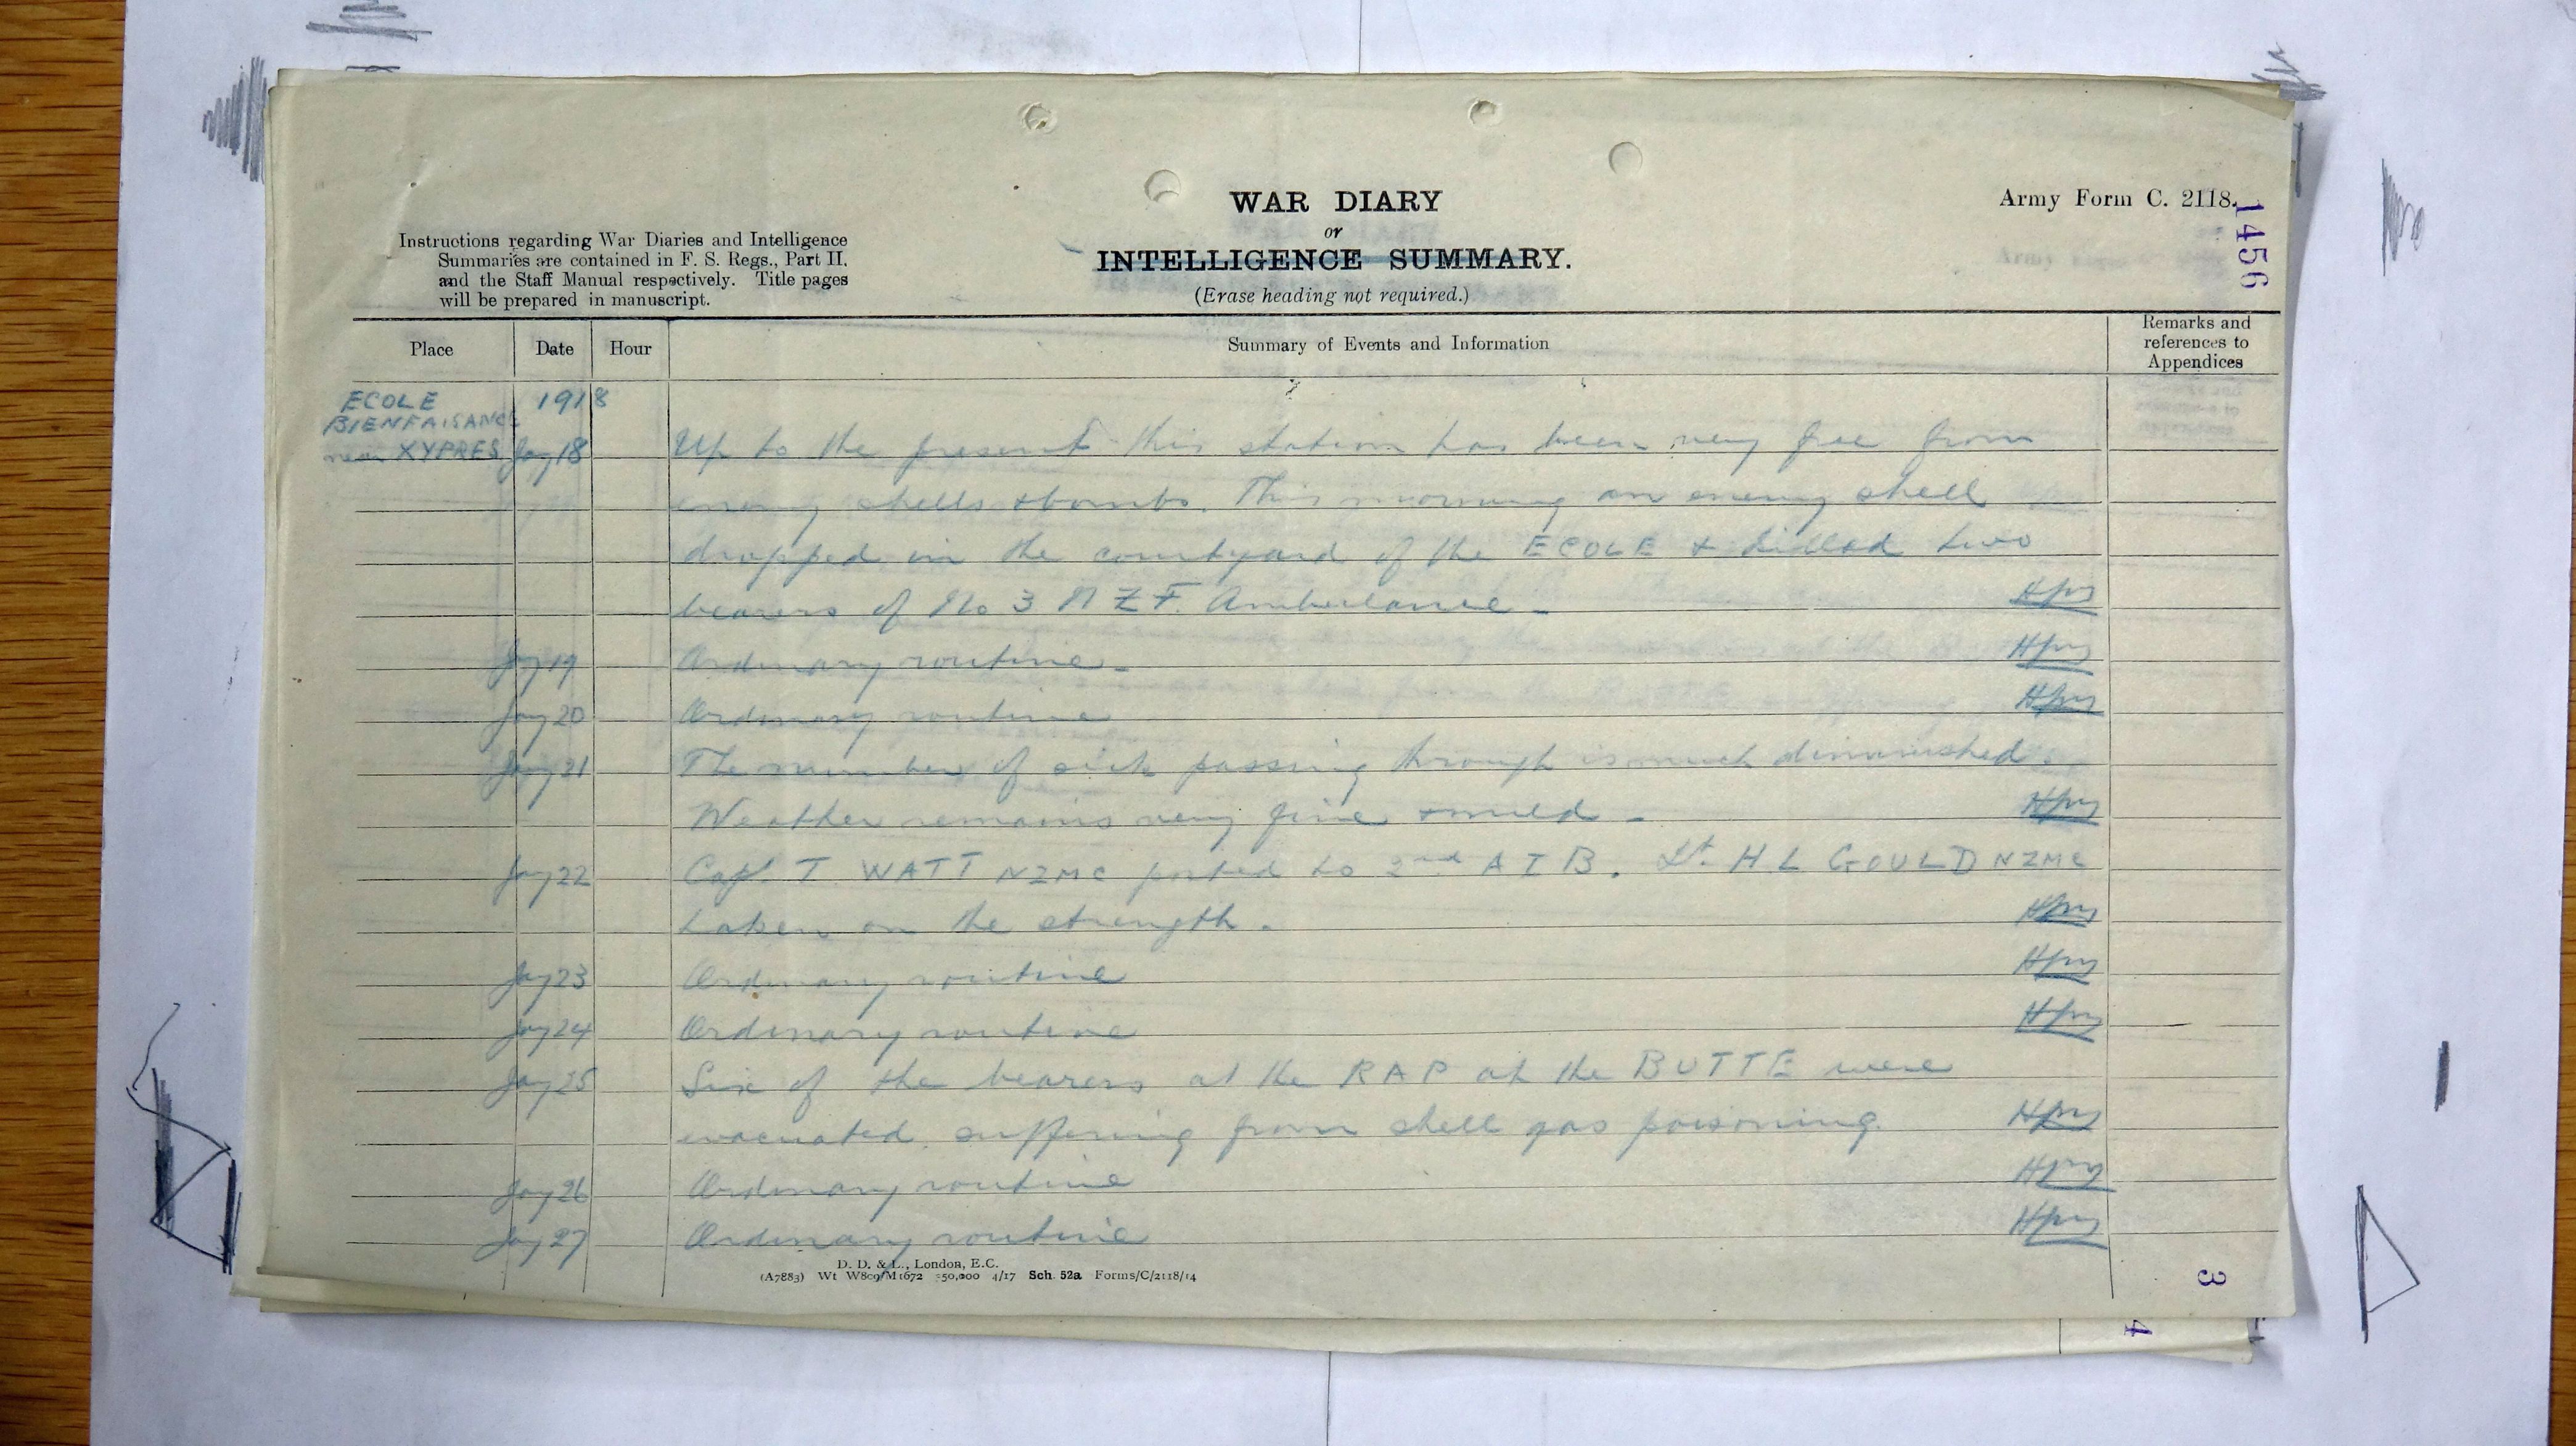 WAR DIARY
or
INTELLIGENCE SUMMARY.
(Erase heading not required.)
Army Form C. 2118.
1456
Instructions regarding War Diaries and Intelligence
Summaries are contained in F. S. Regs., Part II.
and the Staff Manual respectively. Title pages
will be prepared in manuscript.
Place Date Hour Summary of Events and Information Remarks and references to Appendices
ECOLE 1918
BIENFAISANCE
near XYPRES Jany 18 Up to the present this station has been very free from
enemy shells & bombs. This morning an enemy shell
dropped in the courtyard of the ECOLE & killed two
bearers of No 3 N Z F. Ambulance -
Jany 19 Ordinary routine -
Jany 20 Ordinary routine
Jany 21 The number of sick passing through is much diminished.
Weather remains very fine & mild -
Jany 22 Capt. T WATT NZMC posted to 2nd A I B. Lt. H L GOULD NZMC
taken on the strength.
Jany 23 Ordinary routine
Jany 24 Ordinary routine
Jany 25 Six of the bearers at the RAP at the BUTTE were
evacuated suffering from shell gas poisoning.
Jany 26 Ordinary routine
Jany 27 Ordinary routine
D. D. & L., London, E.C.
(A7883) Wt W809/M1672 350,000 4/17 Sch. 52a Forms/C/2118/14
3
4